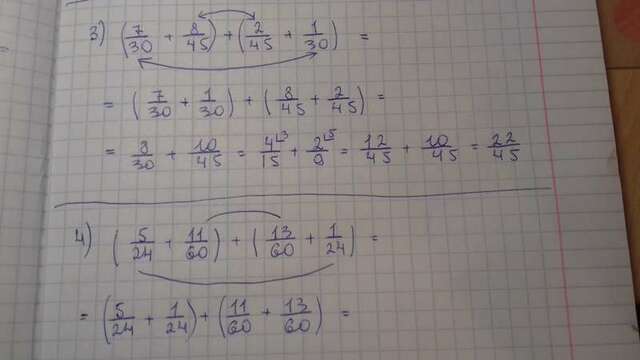 3) (7/30 + 8/45) + (2/45 + 1/30) =
= (7/30 + 1/30) + (8/45 + 2/45) =
= 8/30 + 10/45 = 4/15 ⌊3 + 2/9 ⌊5 = 12/45 + 10/45 = 22/45
4) (5/24 + 11/60) + (13/60 + 1/24) =
= (5/24 + 1/24) + (11/60 + 13/60) =